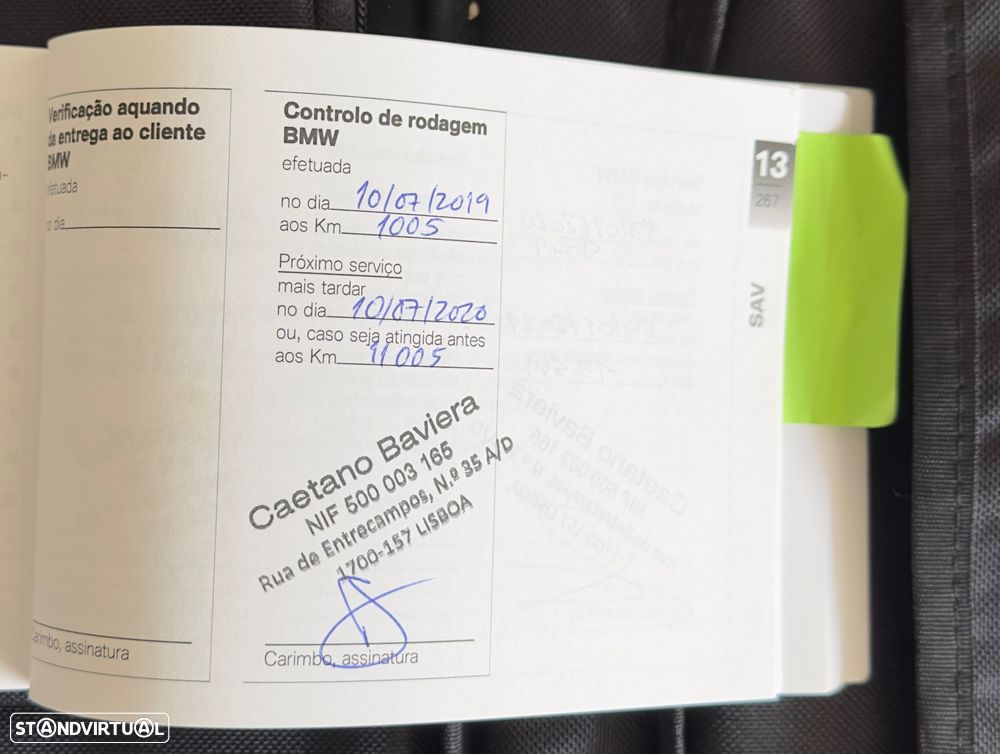 Verificação aquando
da entrega ao cliente
BMW
efetuada
no dia
Carimbo, assinatura
Controlo de rodagem
BMW
efetuada
no dia 10/07/2019
aos Km 1005
Próximo serviço
mais tardar
no dia 10/07/2020
ou, caso seja atingida antes
aos Km 11005
Caetano Baviera
NIF 500 003 165
Rua de Entrecampos, N.º 35 A/D
1700-157 LISBOA
Carimbo, assinatura
13
267
SAV
STANDVIRTUAL